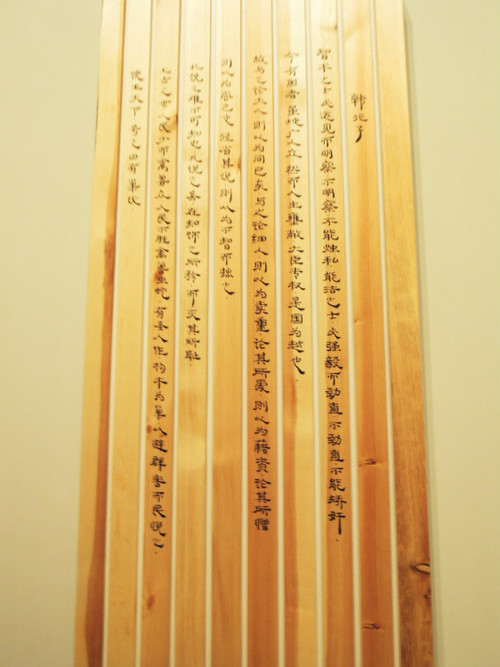 韩非子
智术之士必远见而明察不明察不能烛私能法之士必强毅而劲直不劲直不能矫奸.
今有国者虽地广人众然而人主壅蔽大臣专权是国为越也.
故与之论大人则以为间己矣与之论细人则以为卖重论其所爱则以为藉资论其所憎
则以为尝己也径省其说则以为不智而拙之
此说之难不可知也凡说之务在知饰之所矜而灭其所耻.
上古之世人民少而禽兽众人民不胜禽兽虫蛇有圣人作构木为巢以避群害而民悦之.
使王天下号之曰有巢氏